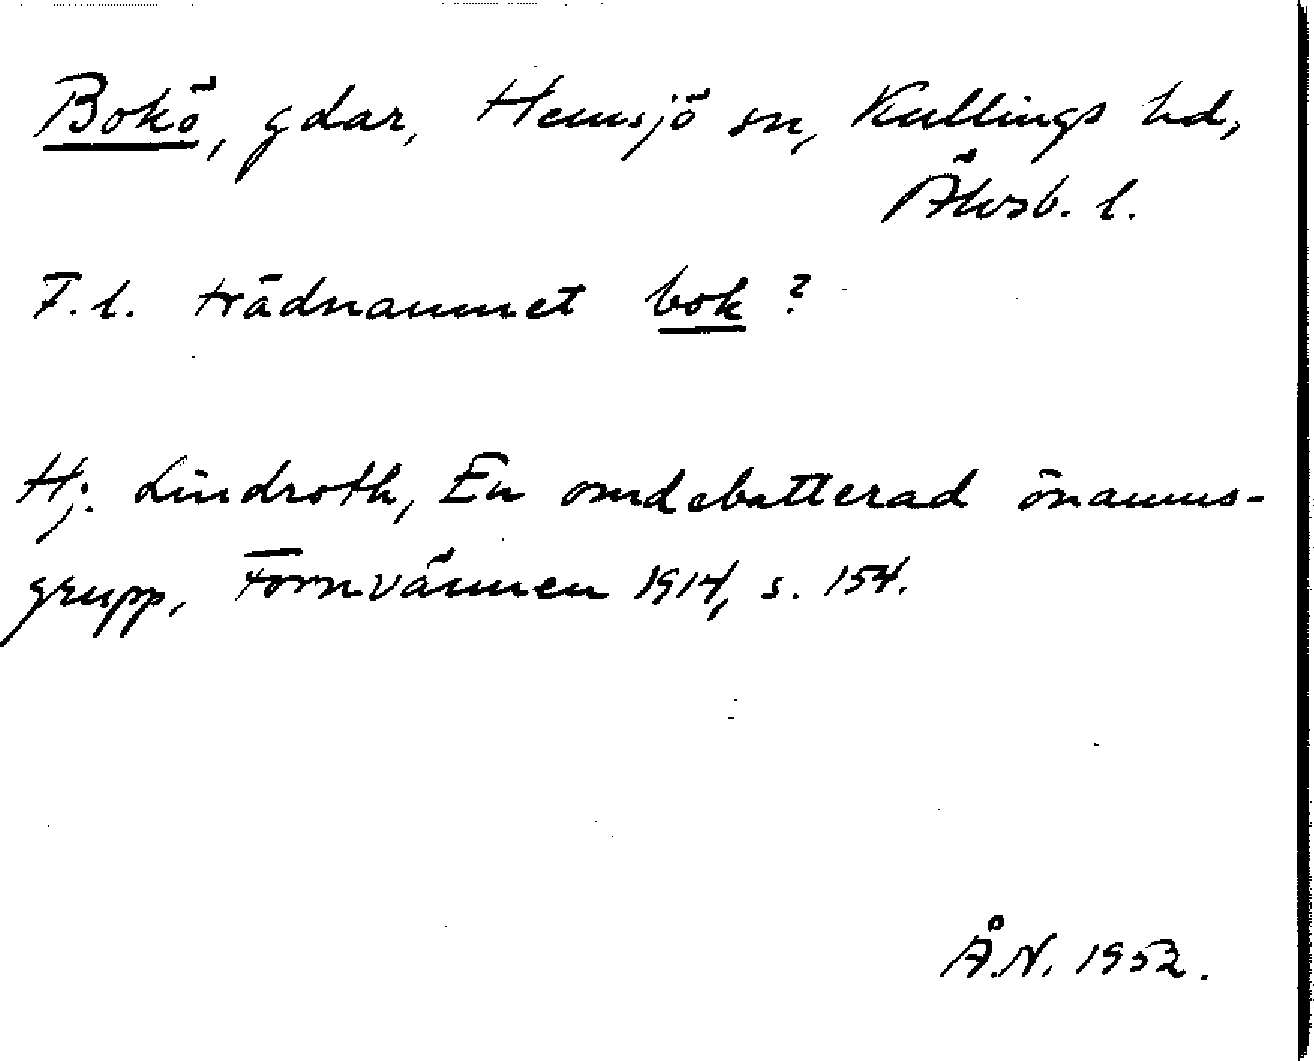 Bokö, gdar, Hemsjö sn, Kullings hd,
Älvsb. l.
F.l. trädnamnet bok ?
Hj. Lindroth, En omdebatterad önamns-
grupp, Fornvännen 1914, s. 154.
Å.N. 1952.